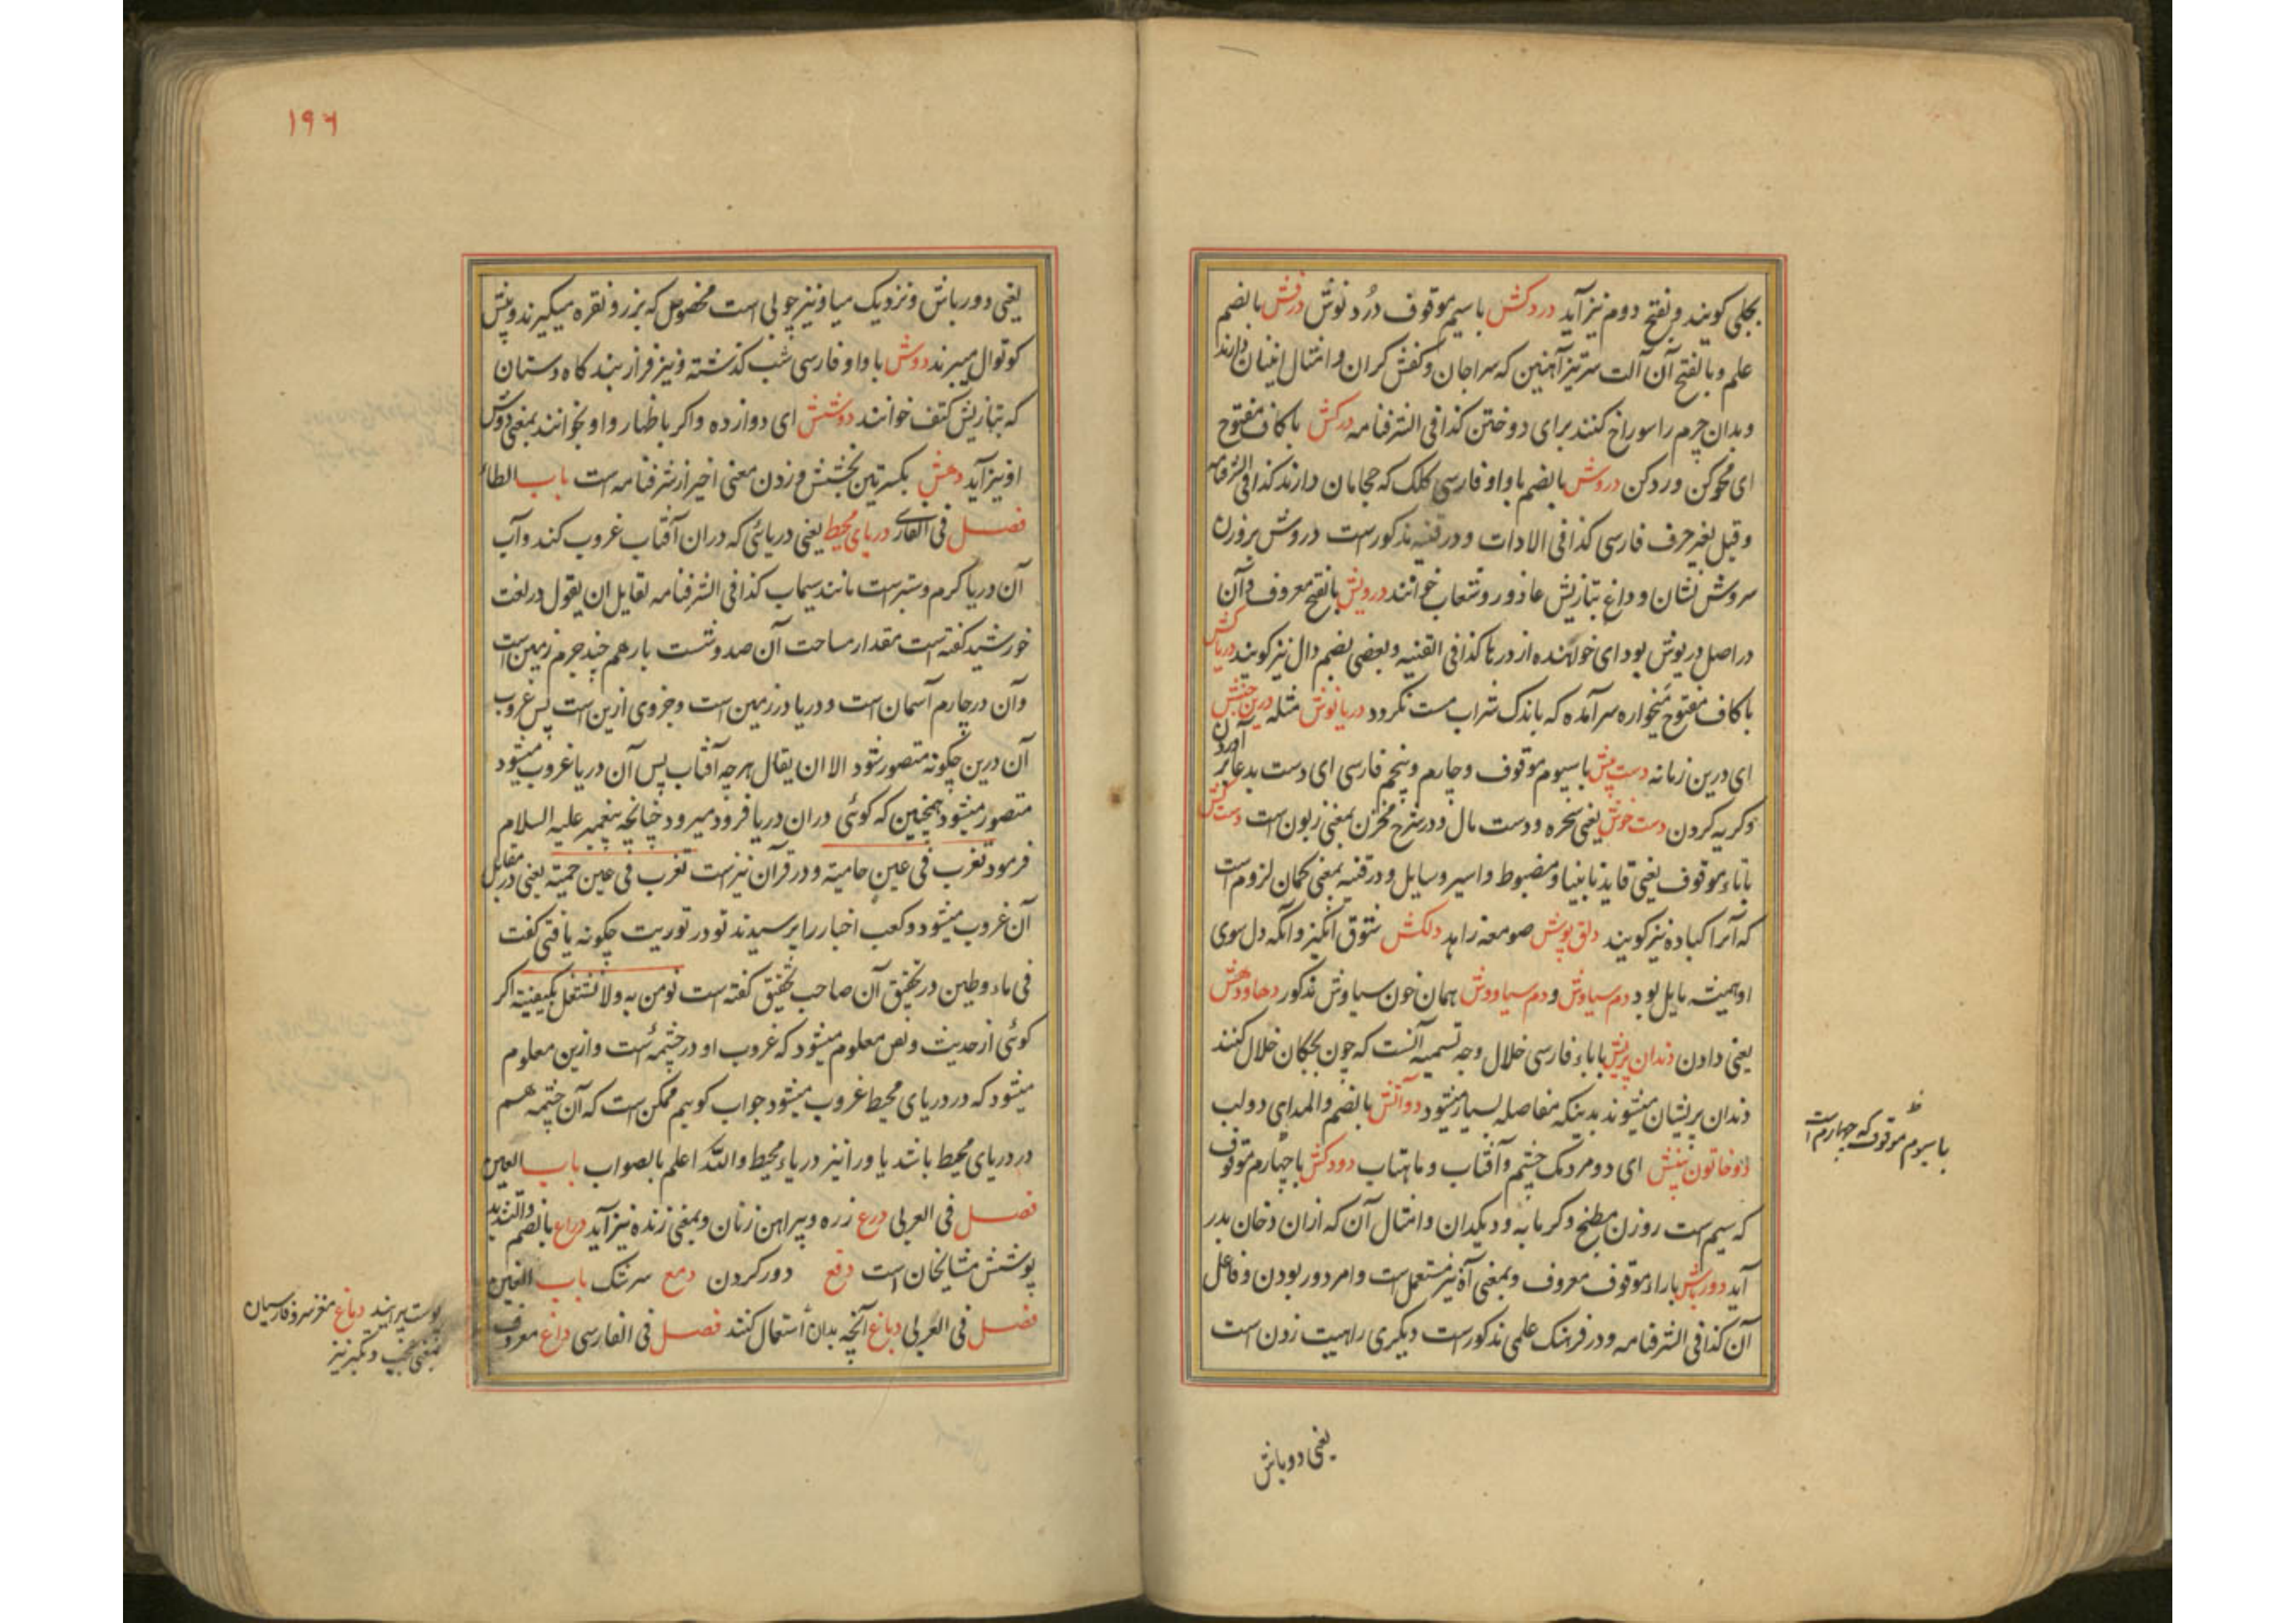 بجلی کویند و بفتح دوم نیز آید دردکش با سیم موقوف دُرد نوش درفش بالضم
علم و بالفتح آن آلت سر تیز آهنین که سراجان و کفش کران و امثال ایشان دارند
و بدان چرم را سوراخ کنند برای دوختن کذا فی الشرفنامه درکش با کاف مفتوح
ای محو کن و رد کن دروش بالضم با واو فارسی کلک که حجامان دارند کذا فی الشرفنامه
و قبل بغیر حرف فارسی کذا فی الادات و در قنیه مذکور است دروش بر وزن
سروش نشان و داغ بتازیش عاذور و شعاب خوانند درویش بالفتح معروف و آن
در اصل دریوش بود ای خواهنده از درها کذا فی القنیه و بعضی بضم دال نیز کویند دریاکش
با کاف مفتوح میخواره سرآمده که باندک شراب مست نکردد دریانوش مثله درین جنبش
ای درین زمانه دست پیش با سیوم موقوف و چارم و پنجم فارسی ای دست بدعا بر آوردن
و کریه کردن دست خوش یعنی سخره و دست مال و در شرح مخزن بمعنی زبون است دست کش
با تاء موقوف یعنی قاید نابینا و مضبوط و اسیر و سایل و در قنیه بمعنی کمان لزوم است
که آنرا کباده نیز کویند دلق پوش صومعه زاهد دلکش شوق انکیز و آنکه دل سوی
او همیشه مایل بود دم سیاوش و دم سیاووش همان خون سیاوش مذکور دهاودهش
یعنی دادن دندان پریش با باء فارسی خلال وجه تسمیه آنست که چون بچکان خلال کنند
دندان پریشان میشوند بدینکه مفاصله بسیار میشود دوآتش بالضم والمد ای دو لب
دو خاتون بینش ای دو مردمک چشم و آفتاب و ماهتاب دودکش با چهارم موقوف
که سیم است روزن مطبخ و کرمابه و دیکدان و امثال آن که ازان دخان بدر
آید دورباش با راء موقوف معروف و بمعنی آه نیز مستعمل است و امر دور بودن و فاعل
آن کذا فی الشرفنامه و در فرهنک علمی مذکور است دیکری را هیبت زدن است
با سیوم موقوف که چهارم است
یعنی دورباش
۱۹۶
یعنی دورباش و نزدیک میا و نیز چوبی است مخصوص که بزر و نقره میکیرند و پیش
کوتوال میبرند دوش با واو فارسی شب کذشته و نیز فراز بند کاه دستان
که بتازیش کتف خوانند دوشش ای دوازده و اکر باظهار واو بخوانند بمعنی دوش
او نیز آید دهش بکسرتین بخشش و زدن معنی اخیر از شرفنامه است باب الطاء
فصل فی الفارسی دریای محیط یعنی دریائی که دران آفتاب غروب کند و آب
آن دریا کرم و ستبر است مانند سیماب کذا فی الشرفنامه لقایل ان یقول در لغت
خورشید کفته است مقدار مساحت آن صد و شست بار هم چند جرم زمین است
و آن در چارم آسمان است و دریا در زمین است و جزوی ازین است پس غروب
آن درین چکونه متصور شود الا ان یقال هرچه آفتاب پس آن دریا غروب میشود
متصور میشود همچنین که کوئی دران دریا فرود میرود چنانچه پیغمبر علیه السلام
فرمود تغرب فی عین حامیة و در قرآن نیز است تغرب فی عین حمئة یعنی در مقابل
آن غروب میشود و کعب اخبار را پرسیدند تو در توریت چکونه یافتی کفت
فی ماء و طین در تحقیق آن صاحب تحقیق کفته است نومن به ولا نشتغل بکیفیته اکر
کوئی از حدیث و نص معلوم میشود که غروب او در چشمه است و ازین معلوم
میشود که در دریای محیط غروب میشود جواب کوییم ممکن است که آن چشمه هم
در دریای محیط باشد یا ورا نیز دریاء محیط والله اعلم بالصواب باب العین
فصل فی العربی درع زره و پیراهن زنان و بمعنی زنده نیز آید دراع بالضم والتشدید
پوشش مشایخان است دفع دور کردن دمع سرشک باب الغین
فصل فی العربی دباغ آنچه بدان استعمال کنند فصل فی الفارسی داغ معروف
پوست پیرایند دماغ مغز سر و فارسیان
بمعنی عجب و تکبر نیز